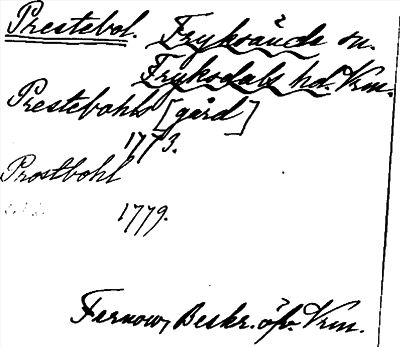 Prestebol. Fryksände sn.
Fryksdals hd. Vrm.
Prestebohl [gård]
1773.
Prostbohl
1779.
Fernow, Beskr. öfv. Vrm.